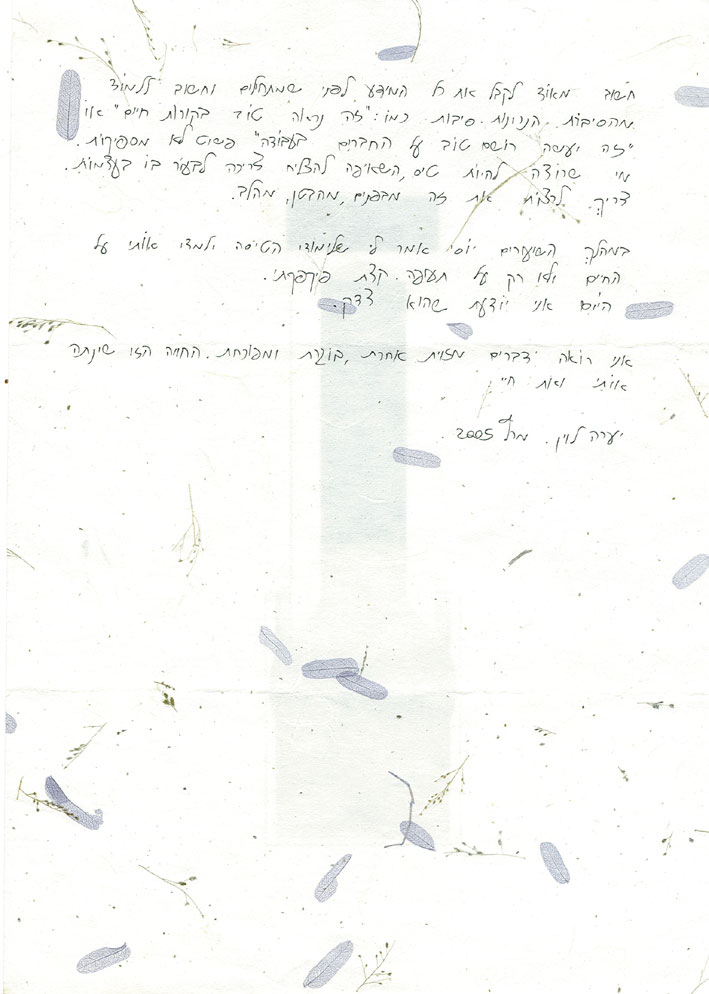 חשוב מאוד לקבל את כל המידע לפני שמתחילים וחשוב ללמוד
מהסיבות הנכונות. סיבות כמו: "זה נראה טוב בקורות חיים" או
"זה יעשה רושם טוב על החברים בעבודה" פשוט לא מספיקות.
מי שרוצה להיות טיס, השאיפה להצליח צריכה לבעור בו בעצמות.
צריך לרצות את זה מבפנים, מהבטן, מהלב.
במהלך השיעורים יוסי אמר לי שלימודי הטיסה ילמדו אותי על
החיים ולא רק על תעופה. קצת פיקפקתי.
היום אני יודעת שהוא צדק.
אני רואה דברים מזוית אחרת, בוגרת ומפוכחת. החויה הזו שינתה
אותי ואת חיי.
יערה לוין. 2005